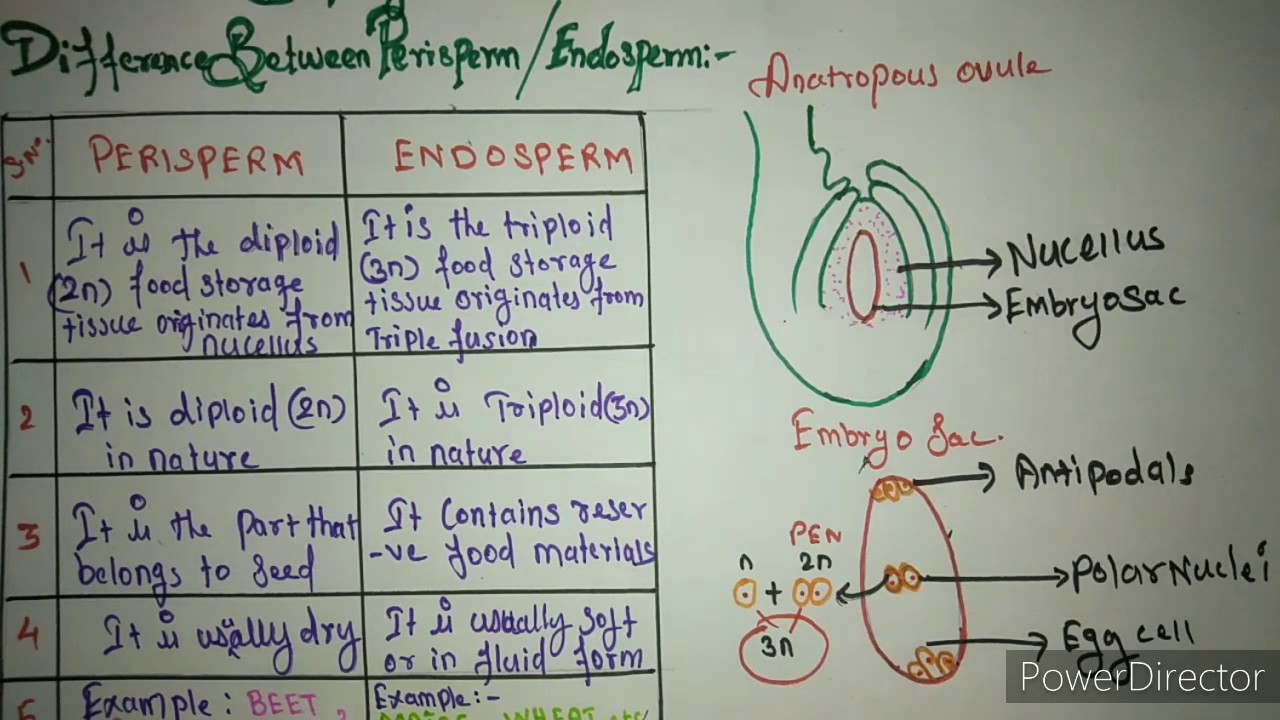 Difference Between Perisperm/Endosperm:-
S.No.
PERISPERM
ENDOSPERM
1
It is the diploid
(2n) food storage
tissue originates from
nucellus
It is the triploid
(3n) food storage
tissue originates from
Triple fusion
2
It is diploid (2n)
in nature
It is Triploid(3n)
in nature
3
It is the part that
belongs to seed
It Contains reser
-ve food materials
4
It is usually dry
It is usually soft
or in fluid form
5
Example: BEET,
Example:-
WHEAT etc
Anatropous ovule
Nucellus
Embryosac
Embryo Sac.
Antipodals
PEN
n
2n
+
Polar Nuclei
3n
Egg cell
PowerDirector